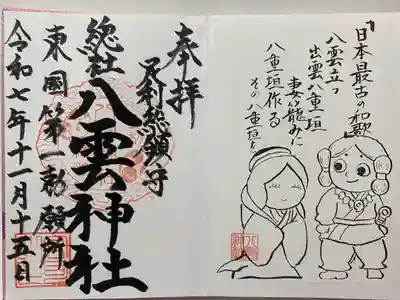 日本最古の和歌
八雲立つ
出雲八重垣
妻籠みに
八重垣作る
その八重垣を
奉拝
足利総鎮守
総社
八雲神社
東國第一勅願所
令和七年十一月十五日